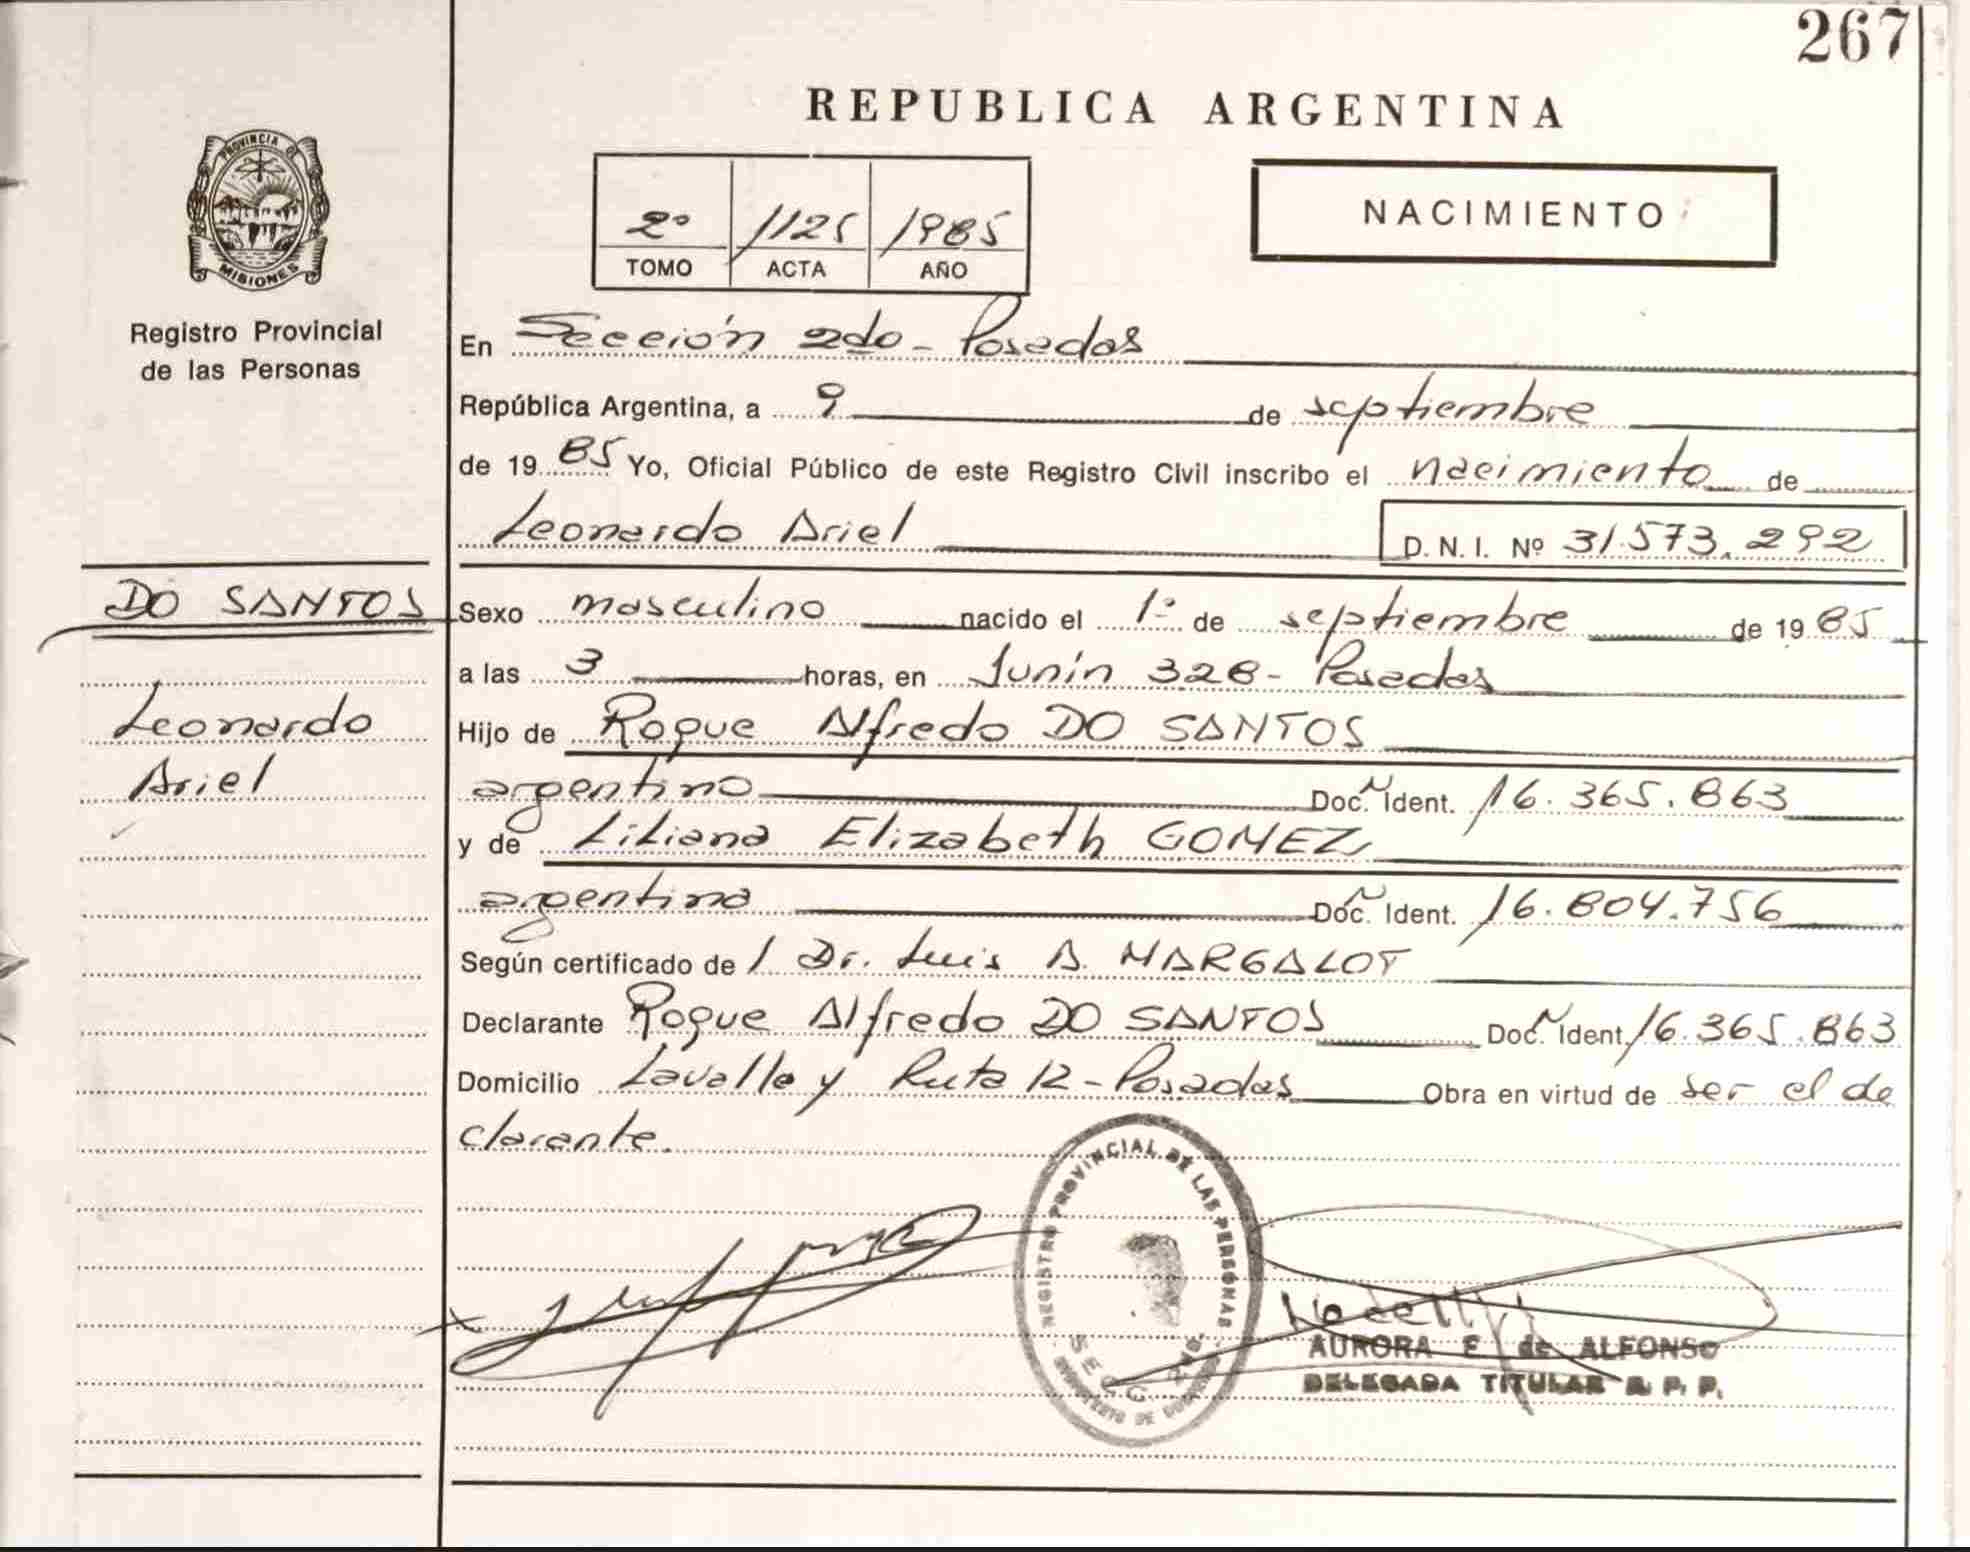 267
REPUBLICA ARGENTINA
2º 1125 1985
TOMO ACTA AÑO
NACIMIENTO
PROVINCIA DE
MISIONES
Registro Provincial
de las Personas
En Sección 2do - Posadas
República Argentina, a 9 de septiembre
de 19 85 Yo, Oficial Público de este Registro Civil inscribo el nacimiento de
Leonardo Ariel D.N.I. Nº 31.573.292
DO SANTOS
Leonardo
Ariel
Sexo masculino nacido el 1º de septiembre de 19 85
a las 3 horas, en Junín 328 - Posadas
Hijo de Roque Alfredo DO SANTOS
argentino Doc. Ident. 16.365.863
y de Liliana Elizabeth GOMEZ
argentina Doc. Ident. 16.804.756
Según certificado de l Dr. Luis A. MARGALOT
Declarante Roque Alfredo DO SANTOS Doc. Ident. 16.365.863
Domicilio Lavalle y Ruta 12 - Posadas Obra en virtud de ser el de
clarante.
REGISTRO PROVINCIAL DE LAS PERSONAS
SECC.
AURORA E. de ALFONSO
DELEGADA TITULAR R. P. P.